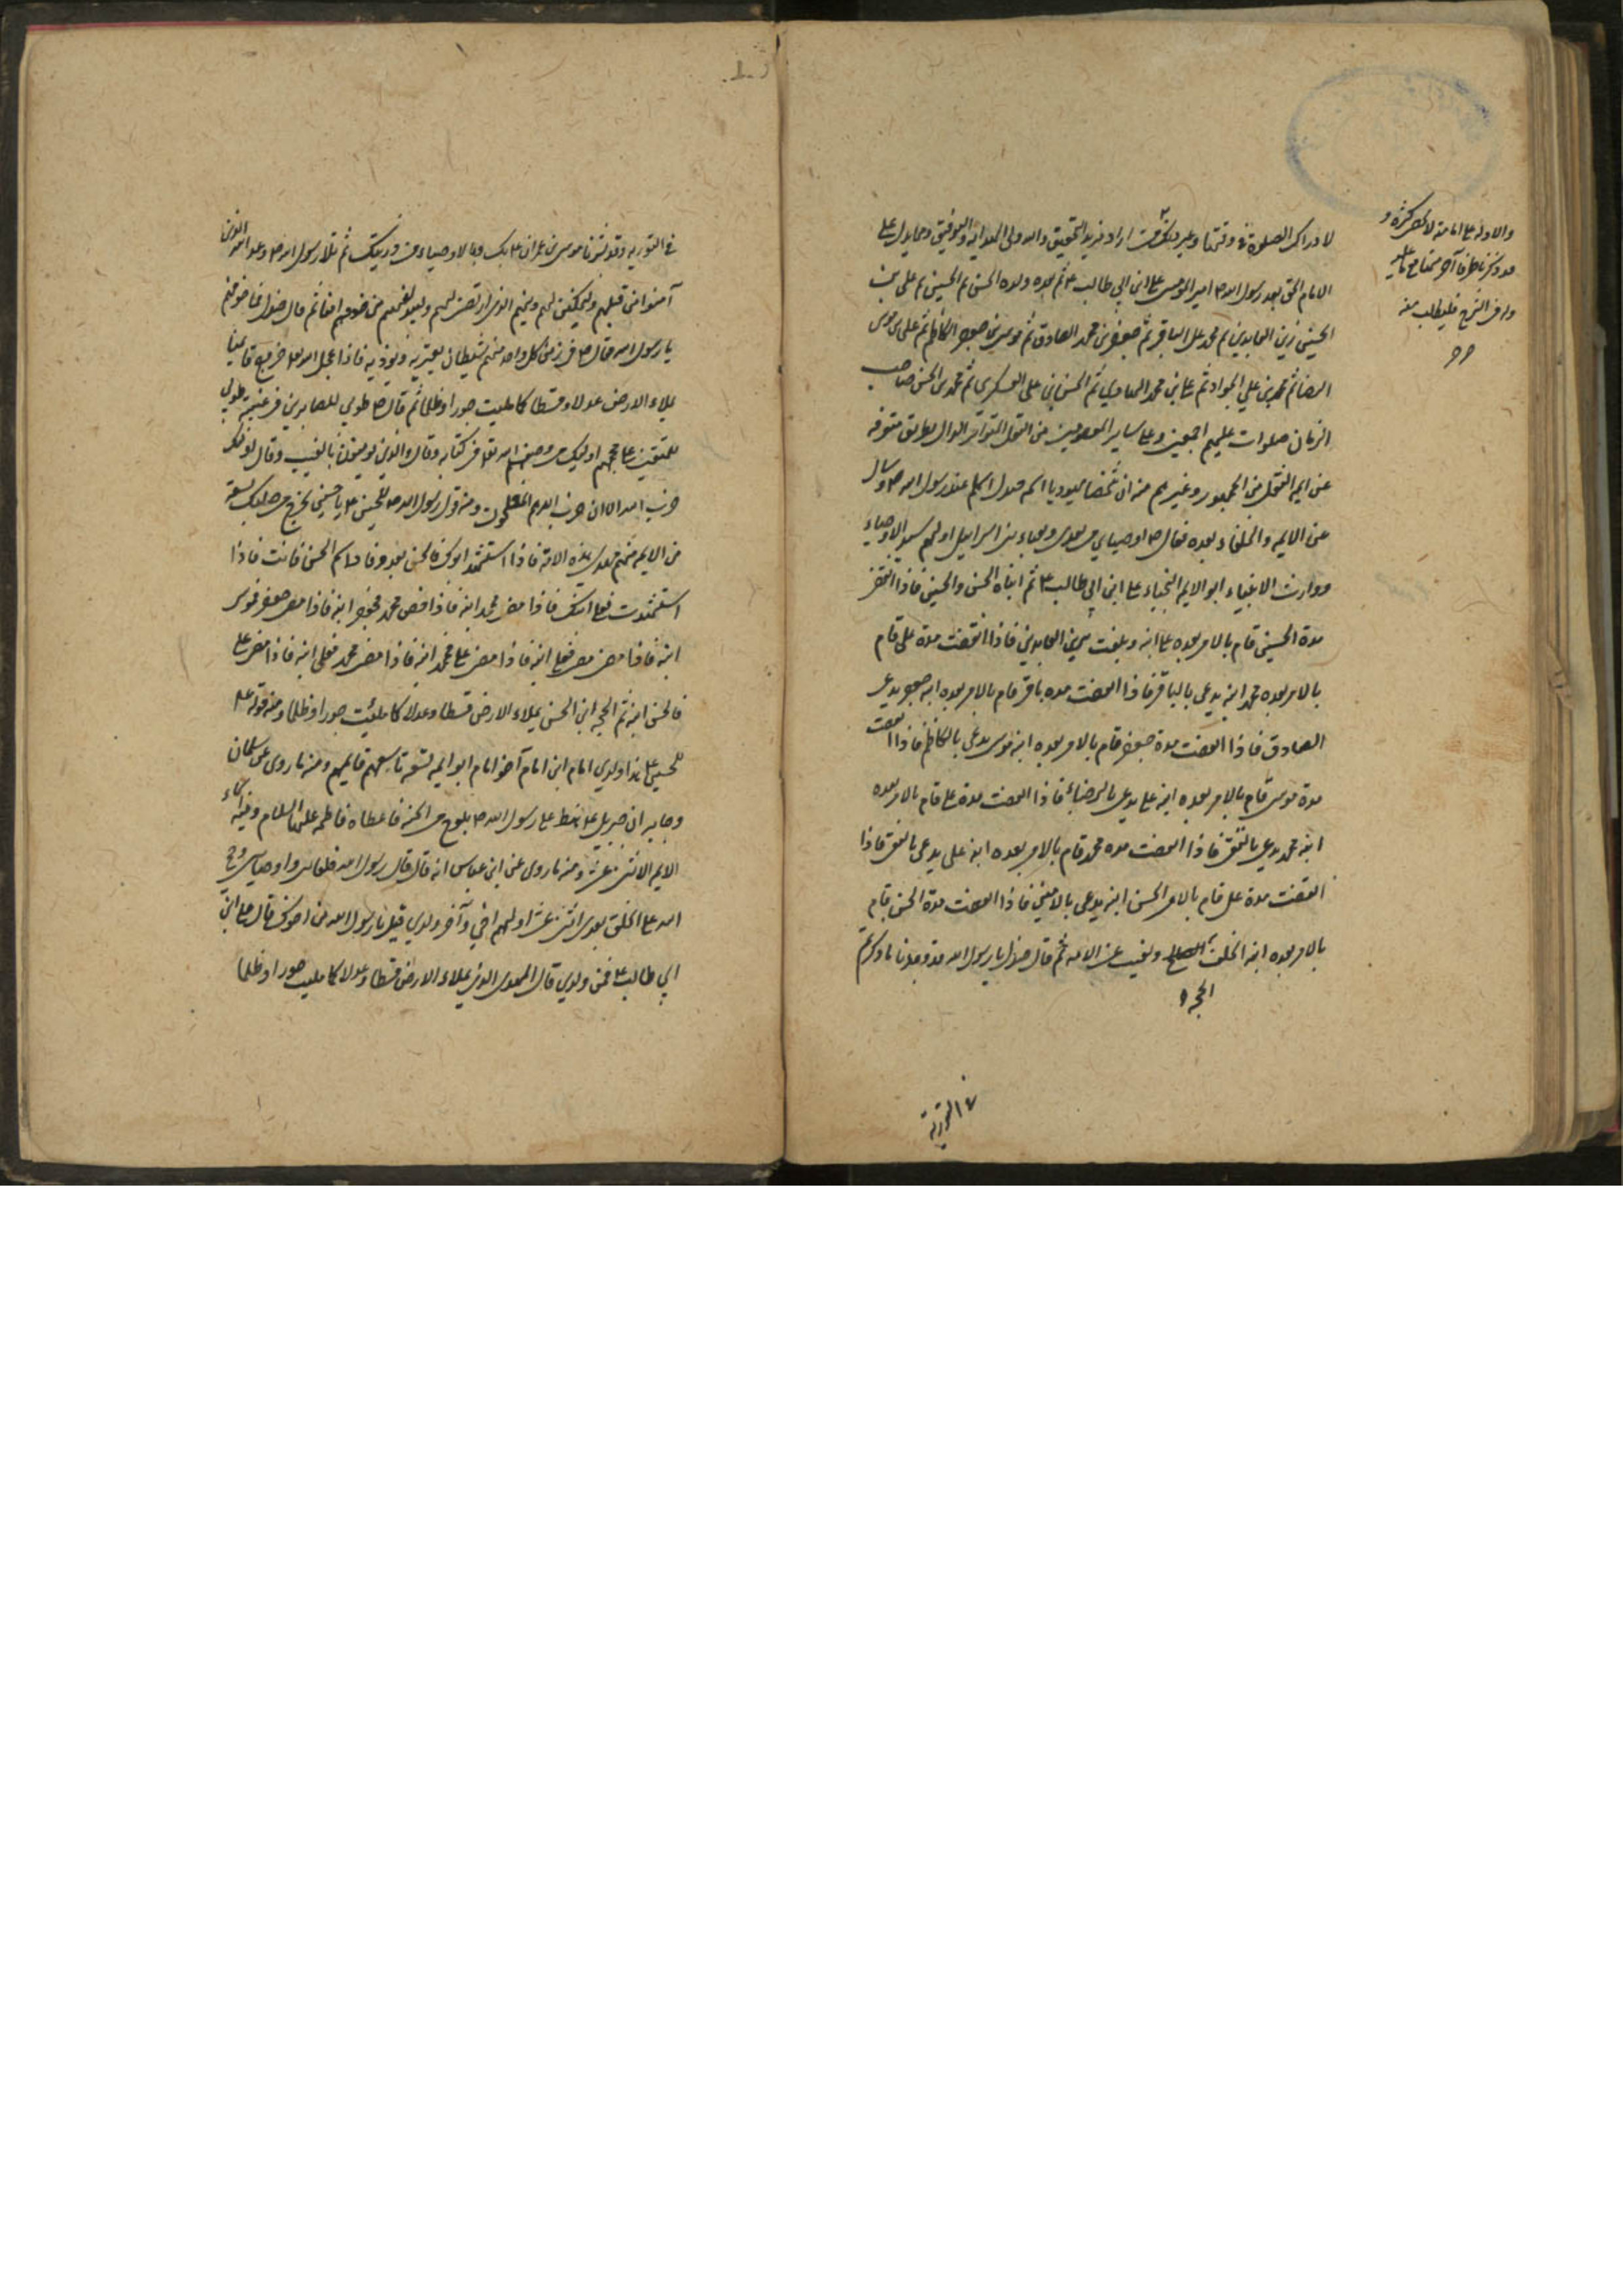 لادراك الصلوة في وقتها وغير ذلك فمن اراد مزيد التحقيق والله ولى الهداية والتوفيق ومما يدل على
الامام الحق بعد رسول الله ص امير المؤمنين على ابن ابي طالب ع ثم بعده ولده الحسن ثم الحسين ثم على بن
الحسين زين العابدين ثم محمد بن على الباقر ثم جعفر بن محمد الصادق ثم موسى بن جعفر الكاظم ثم على بن موسى
الرضا ثم محمد بن علي الجواد ثم على بن محمد الهادي ثم الحسن بن على العسكرى ثم محمد بن الحسن صاحب
الزمان صلوات عليهم اجمعين وعلى ساير المعصومين من النقل المتواتر الدال بطرق متنوعه
عن ايمة النقل من الجمهور وغيرهم منه ان شخصا يهوديا اسمه جندل اسلم عند رسول الله ص وسال
عن الايمه والخلفاء بعده فقال ص اوصياي من بعدى بعدد نقباء بنى اسرائيل اولهم سيد الاوصياء
ووارث الانبياء ابو الايمه النجباء على ابن ابي طالب ع ثم ابناه الحسن والحسين فاذا انقضت
مدة الحسين قام بالامر بعده على ابنه ويلقب بزين العابدين فاذا انقضت مدة على قام
بالامر بعده محمد ابنه يدعى بالباقر فاذا انقضت مدة باقر قام بالامر بعده ابنه جعفر يدعى
الصادق فاذا انقضت مدة جعفر قام بالامر بعده ابنه موسى يدعى بالكاظم فاذا انقضت
مدة موسى قام بالامر بعده ابنه على يدعى بالرضا فاذا انقضت مدة على قام بالامر بعده
ابنه محمد يدعى بالتقى فاذا انقضت مدة محمد قام بالامر بعده ابنه على يدعى بالنقى فاذا
انقضت مدة على قام بالامر الحسن ابنه يدعى بالامين فاذا انقضت مدة الحسن قام
بالامر بعده ابنه الخلف الصالح ويغيب عن الامه ثم قال جندل يا رسول الله قد وجدنا ذكركم
الحجه
والادله على امامته لا تحصى كثرة و
فليطلب منه
في التورية وقد بشرنا موسى بن عمران ع بك وبالاوصياء من ذريتك ثم تلا رسول الله ص وعد الله الذين
آمنوا من قبلهم وليمكنن لهم دينهم الذى ارتضى لهم وليبدلنهم من خوفهم امنا ثم قال جندل فما خوفهم
يا رسول الله فقال ص فى زمن كل واحد منهم شيطان يعتريه ويؤذيه فاذا عجل الله خروج قايمنا
يملاء الارض عدلا وقسطا كما مليت جورا وظلما ثم قال ص طوبى للصابرين فى غيبته طوبى
للمتقين على محجتهم اوليك من وصفهم الله تعالى فى كتابه وقال والذين يومنون بالغيب وقال اوليك
حزب الله الا ان حزب الله هم المفلحون ومنه قول رسول الله ص للحسين ع يا حسين يخرج من صلبك تسعة
من الايمه منهم مهدى هذه الامة فاذا استشهد ابوك فالحسن بعده فاذا سم الحسن فانت فاذا
استشهدت فعلى ابنك فاذا مضى على فمحمد ابنه فاذا مضى محمد فجعفر ابنه فاذا مضى جعفر فموسى
ابنه فاذا مضى موسى فعلى ابنه فاذا مضى على فمحمد ابنه فاذا مضى محمد فعلى ابنه فاذا مضى على
فالحسن ابنه ثم الحجه ابن الحسن يملاء الارض قسطا وعدلا كما ملئت جورا وظلما ومنه قوله ع
للحسين ع هذا ولدي امام ابن امام آخو امام ابو ايمه تسعه تاسعهم قايمهم ومنه ما روى عن سلمان
وجابر ان جبريل ع هبط على رسول الله ص بلوح من الجنه فاعطاه فاطمه عليها السلام وفيه اسماء
الايمه الاثنى عشر ومنه ما روى عن ابن عباس انه قال قال رسول الله خلفائى واوصياى وحجج
الله على الخلق بعدى اثنى عشر اولهم اخي وآخرهم ولدي قيل يا رسول الله من اخوك قال على ابن
ابي طالب ع فمن ولدي قال المهدى الذى يملاء الارض قسطا وعدلا كما مليت جورا وظلما